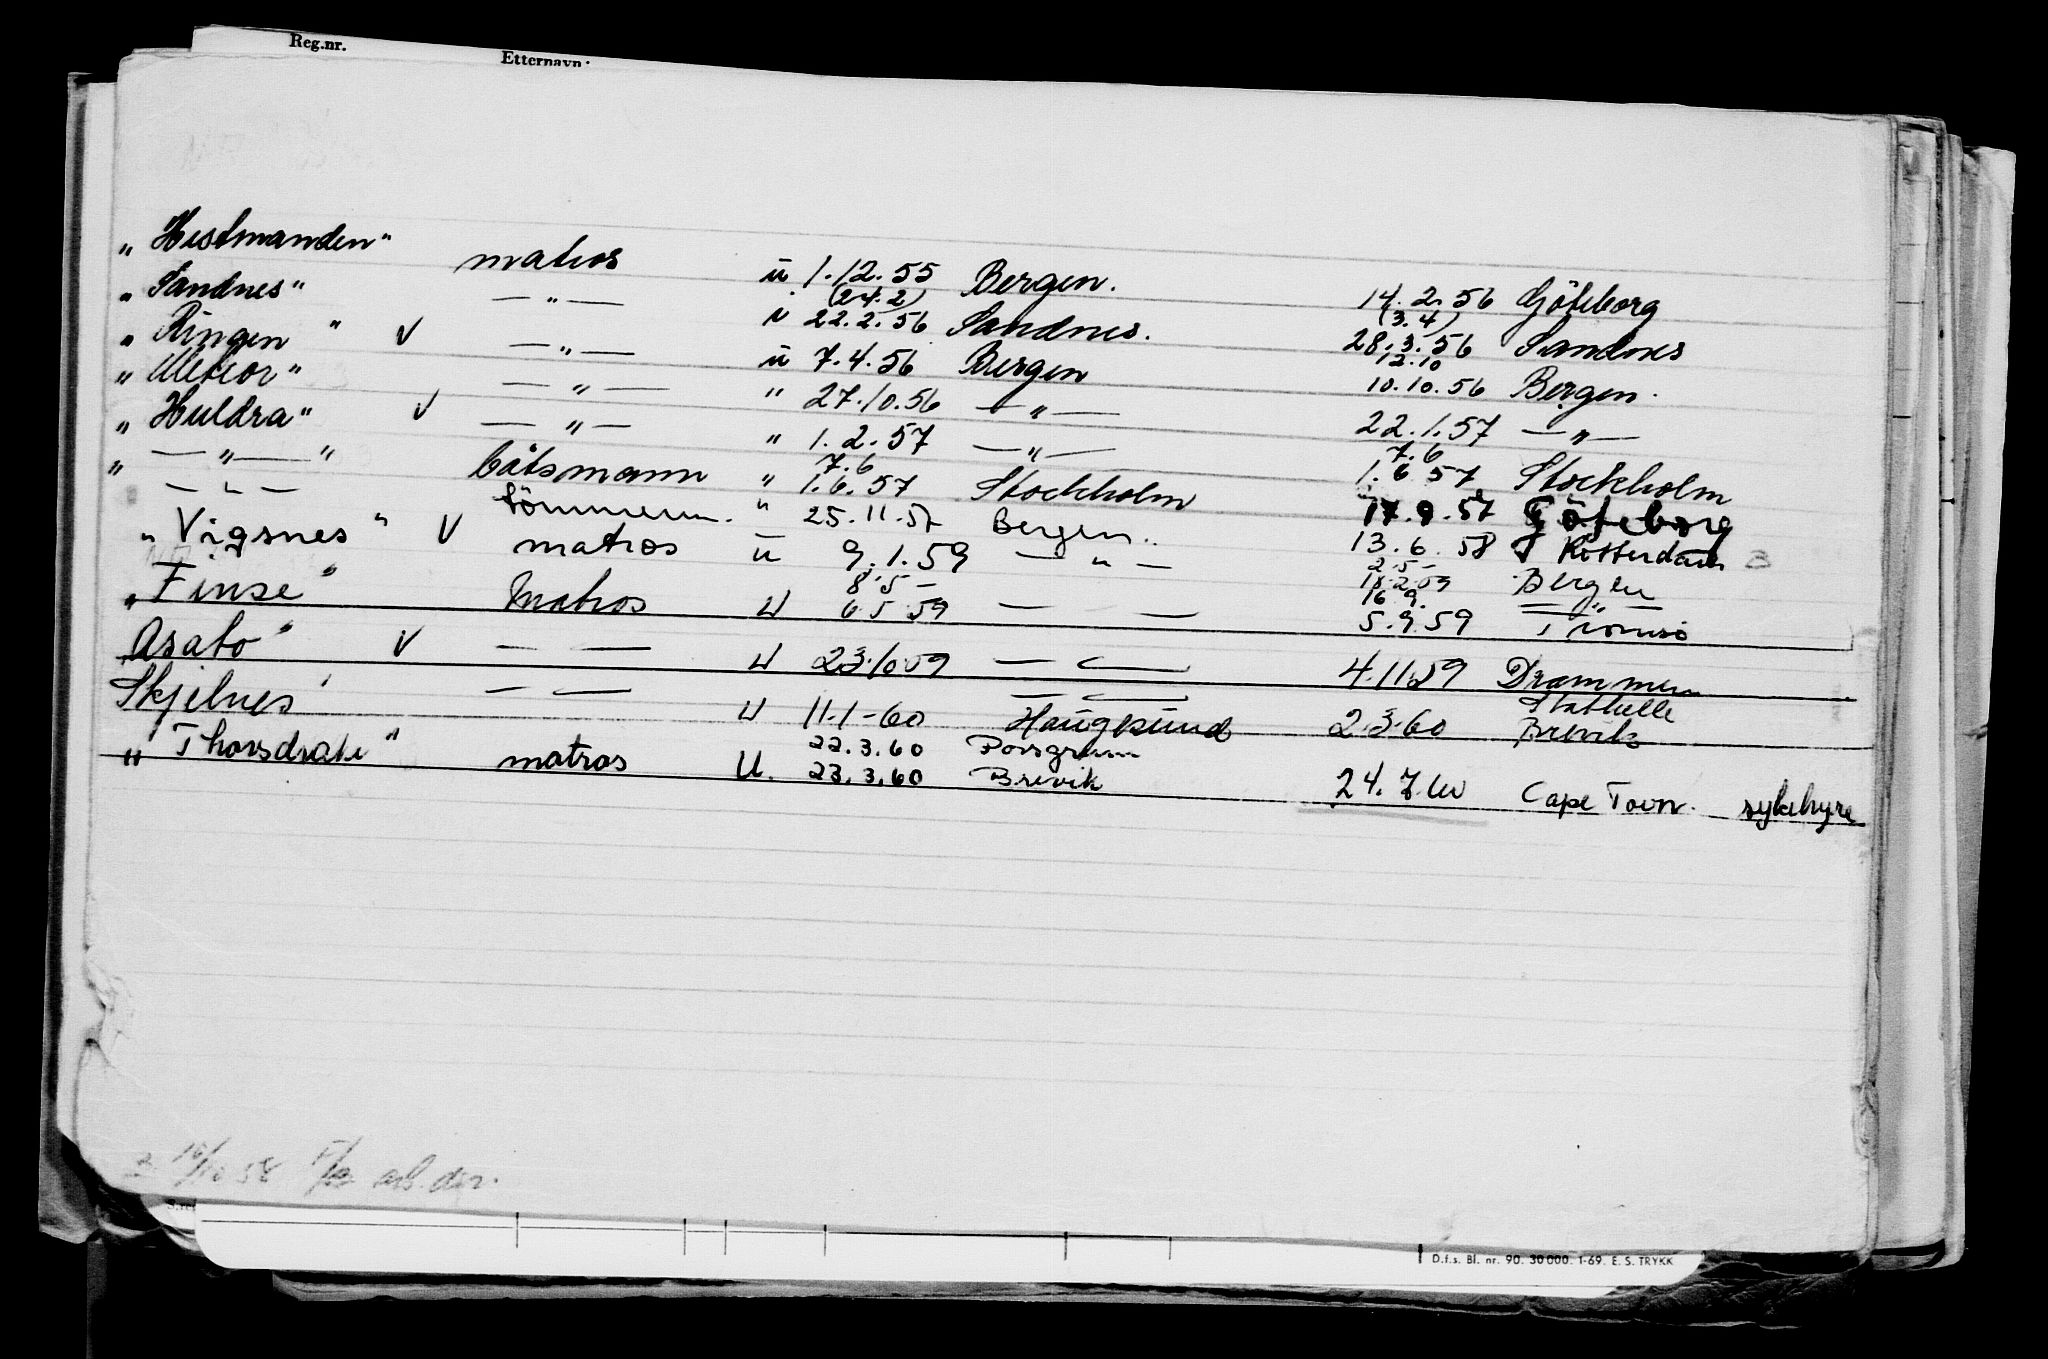 Reg.nr.
Etternavn:
„Hestmanden" matros u 1.12.55 Bergen. 14.2.56 Göteborg
(24.2) (3.4)
„Sandnes" —"— u 22.2.56 Sandnes. 28.3.56 Sandnes
12.10
„Ringen" V —"— u 7.4.56 Bergen 10.10.56 Bergen.
„Meteor" —"— " 27.10.56 —"— 22.1.57 —"—
7.6
„Huldra" V —"— " 1.2.57 —"— 1.6.57 Stockholm
7.6
„—"—" båtsmann " 1.6.57 Stockholm 17.9.57 Göteborg
—"— tömmerm. " 25.11.57 Bergen. 13.6.58 Rotterdam
2.5
„Vigsnes" V matros u 9.1.59 —"— 18.2.59 Bergen
8.5 — 16.9. —"—
„Finse" Matros U 6.5.59 — — 5.9.59 Tromsö
Asato" V — — U 23.10.59 — — 4.11.59 Drammen
— — Stathelle
Skjelnes" — — U 11.1-60 Haugesund 2.3.60 Brevik
22.3.60 Porsgrunn
„Thorsdrake" matros U. 23.3.60 Brevik 24.7.60 Cape Town. sykehyre
16/10 58 arb. dir.
S.rel
D.f.s. Bl. nr. 90. 30 000. 1-69. E. S. TRYKK